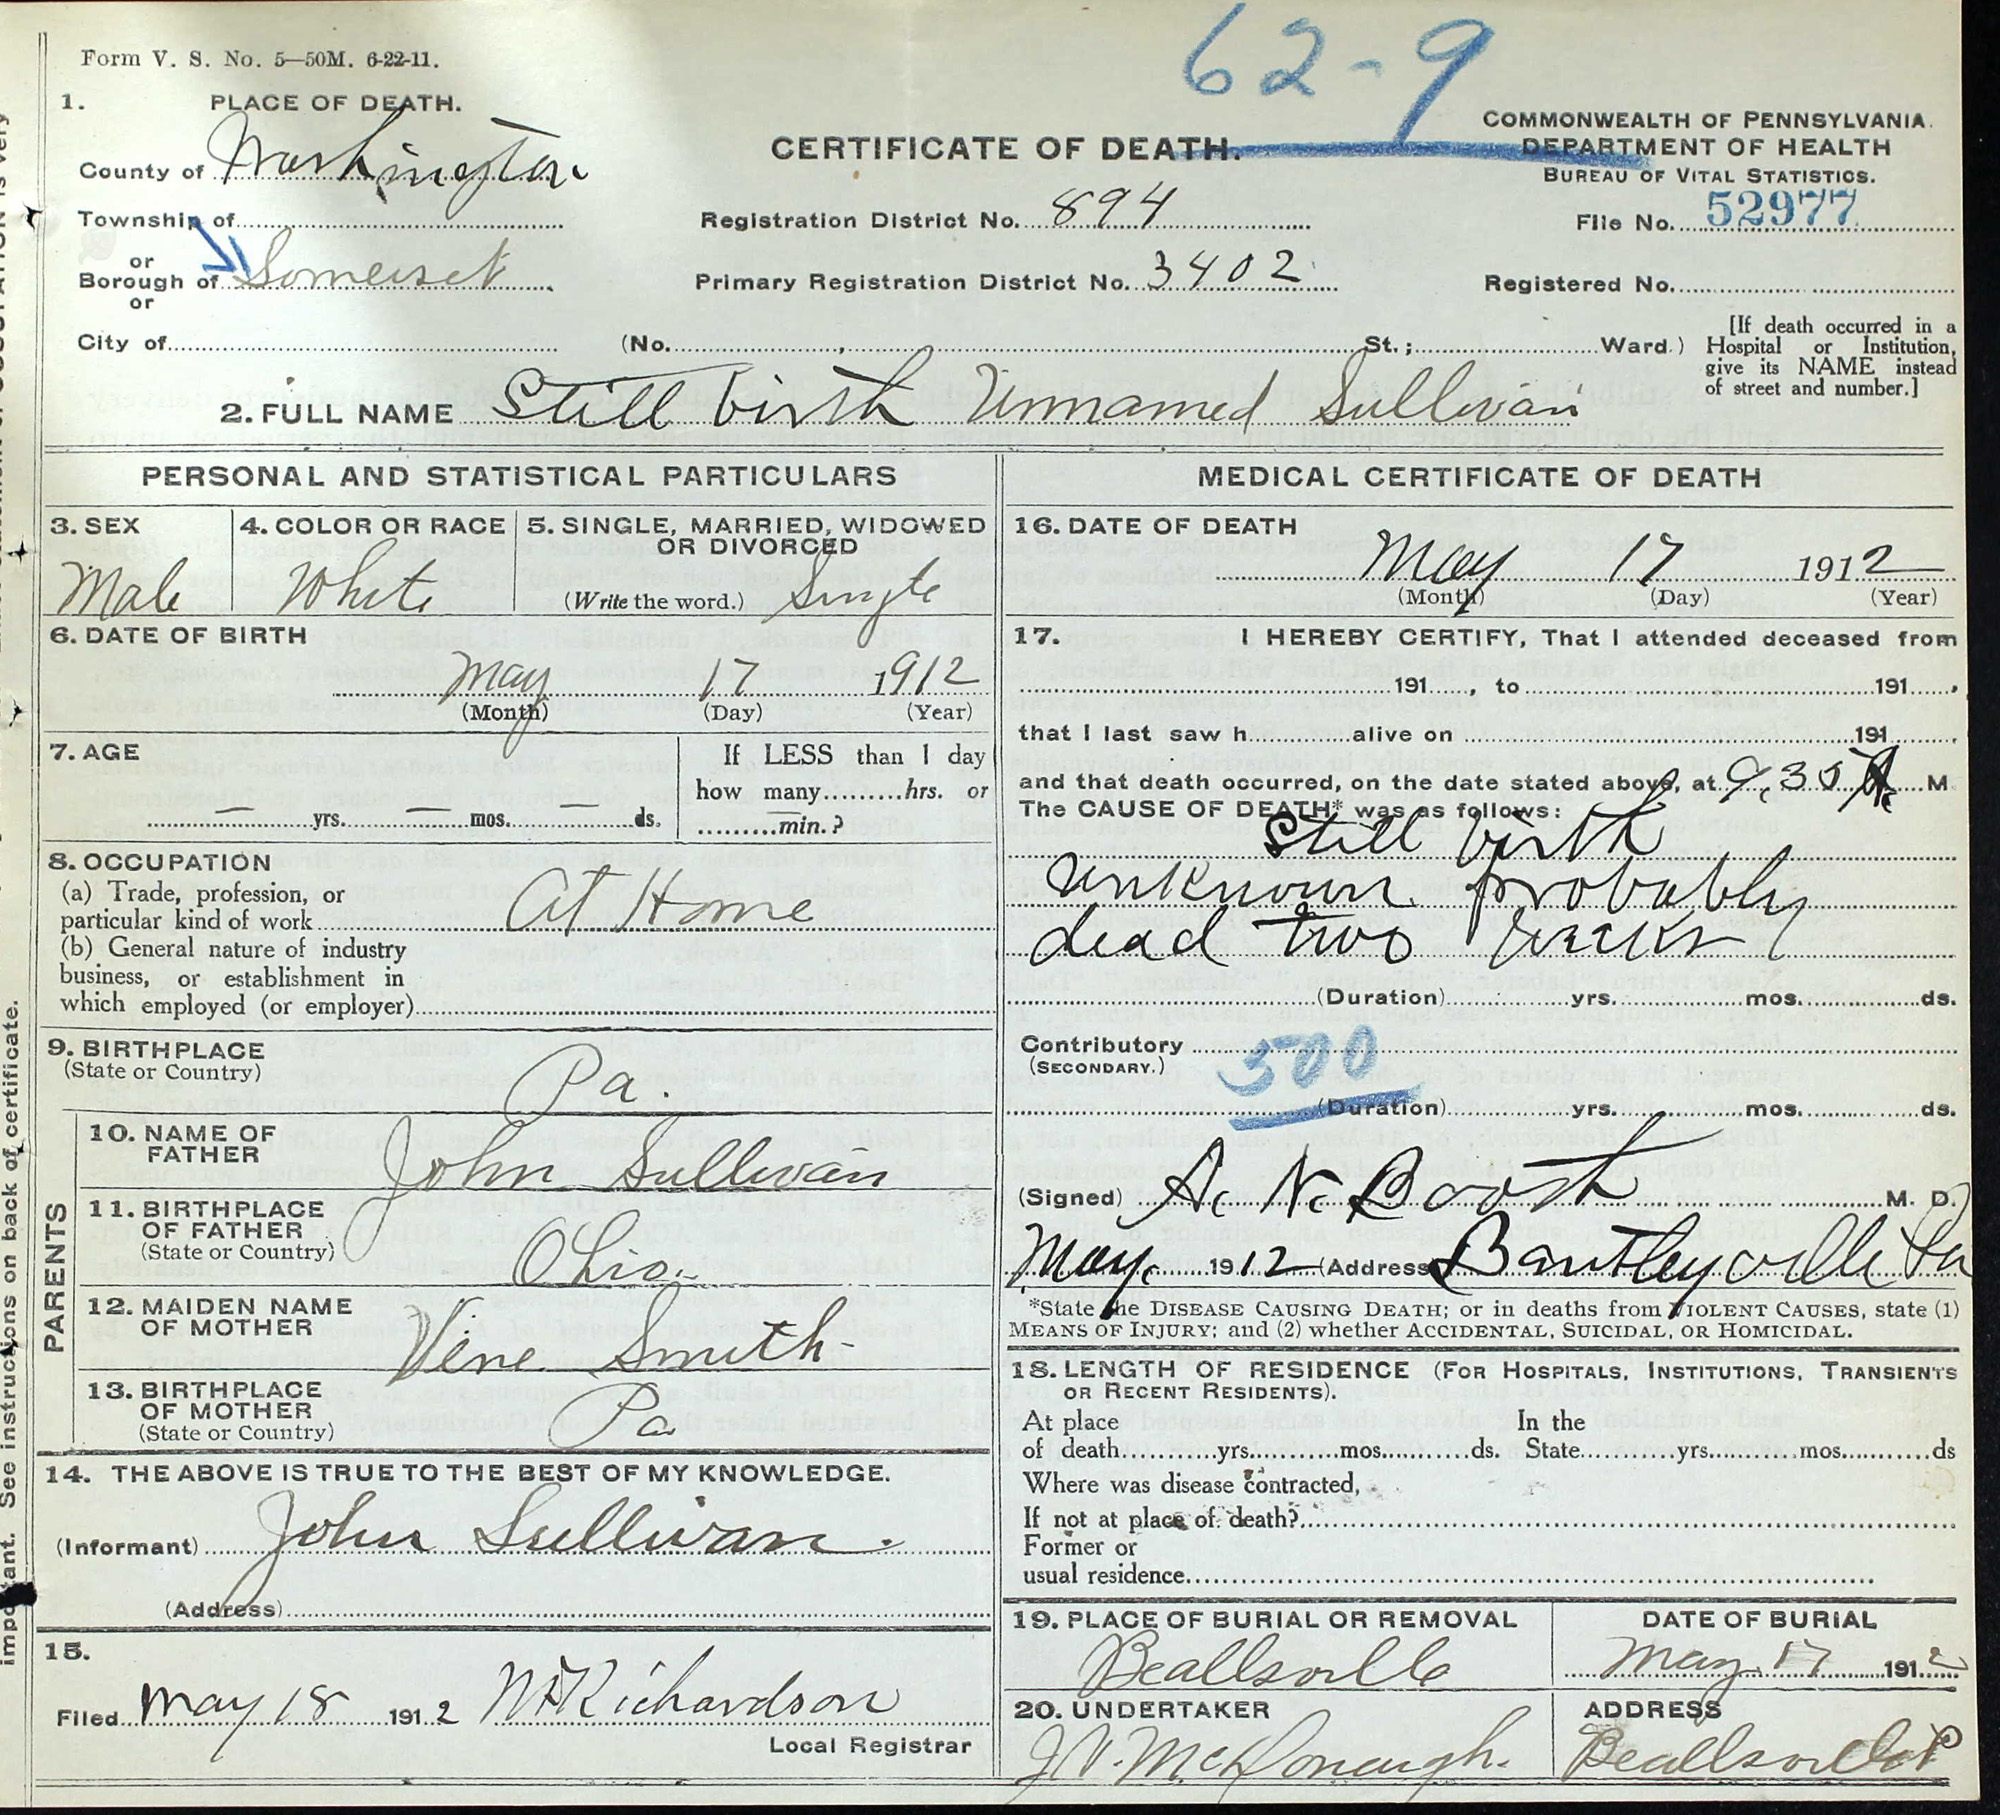 62-9
Form V. S. No. 5—50M. 6-22-11.
1. PLACE OF DEATH.
County of Washington
Township of
or
Borough of Somerset
or
City of (No. , St.; Ward.)
CERTIFICATE OF DEATH.
Registration District No. 894
Primary Registration District No. 3402
COMMONWEALTH OF PENNSYLVANIA.
DEPARTMENT OF HEALTH
BUREAU OF VITAL STATISTICS.
File No. 52977
Registered No.
[If death occurred in a
Hospital or Institution,
give its NAME instead
of street and number.]
2. FULL NAME Still birth Unnamed Sullivan
PERSONAL AND STATISTICAL PARTICULARS
3. SEX
Male
4. COLOR OR RACE
White
5. SINGLE, MARRIED, WIDOWED
OR DIVORCED
(Write the word.) Single
6. DATE OF BIRTH
May 17 1912
(Month) (Day) (Year)
7. AGE
— yrs. — mos. — ds.
If LESS than 1 day
how many.........hrs. or
.........min.?
8. OCCUPATION
(a) Trade, profession, or
particular kind of work At Home
(b) General nature of industry
business, or establishment in
which employed (or employer)
9. BIRTHPLACE
(State or Country)
Pa.
PARENTS
10. NAME OF
FATHER
John Sullivan
11. BIRTHPLACE
OF FATHER
(State or Country)
Ohio.
12. MAIDEN NAME
OF MOTHER
Vene Smith
13. BIRTHPLACE
OF MOTHER
(State or Country)
Pa
14. THE ABOVE IS TRUE TO THE BEST OF MY KNOWLEDGE.
(Informant) John Sullivan.
(Address)
15.
Filed May 18 1912 Richardson
Local Registrar
MEDICAL CERTIFICATE OF DEATH
16. DATE OF DEATH
May 17 1912
(Month) (Day) (Year)
17. I HEREBY CERTIFY, That I attended deceased from
191 , to 191 ,
that I last saw h alive on 191 ,
and that death occurred, on the date stated above, at 9.30 A. M.
The CAUSE OF DEATH* was as follows:
Still birth
unknown probably
dead two weeks
(Duration) yrs. mos. ds.
Contributory
(SECONDARY.)
500
(Duration) yrs. mos. ds.
(Signed) A. N. Booth M. D.
May. 1912 (Address) Bentleyville Pa
*State the DISEASE CAUSING DEATH; or in deaths from VIOLENT CAUSES, state (1)
MEANS OF INJURY; and (2) whether ACCIDENTAL, SUICIDAL, OR HOMICIDAL.
18. LENGTH OF RESIDENCE (FOR HOSPITALS, INSTITUTIONS, TRANSIENTS
OR RECENT RESIDENTS).
At place In the
of death yrs. mos. ds. State yrs. mos. ds
Where was disease contracted,
If not at place of death?
Former or
usual residence
19. PLACE OF BURIAL OR REMOVAL
Beallsville
DATE OF BURIAL
May 17 1912
20. UNDERTAKER
J. V. McDonough.
ADDRESS
Beallsville P
important. See instructions on back of certificate.